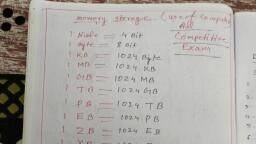 memory storage. (use of comput
All
Competitive
Exam
1 Nible = 4 Bit
1 Byte = 8 Bit
1 KB = 1024 Byte
1 MB = 1024 KB
1 GB = 1024 MB
1 TB = 1024 GB
1 PB = 1024 TB
1 EB = 1024 PB
1 ZB = 1024 EB